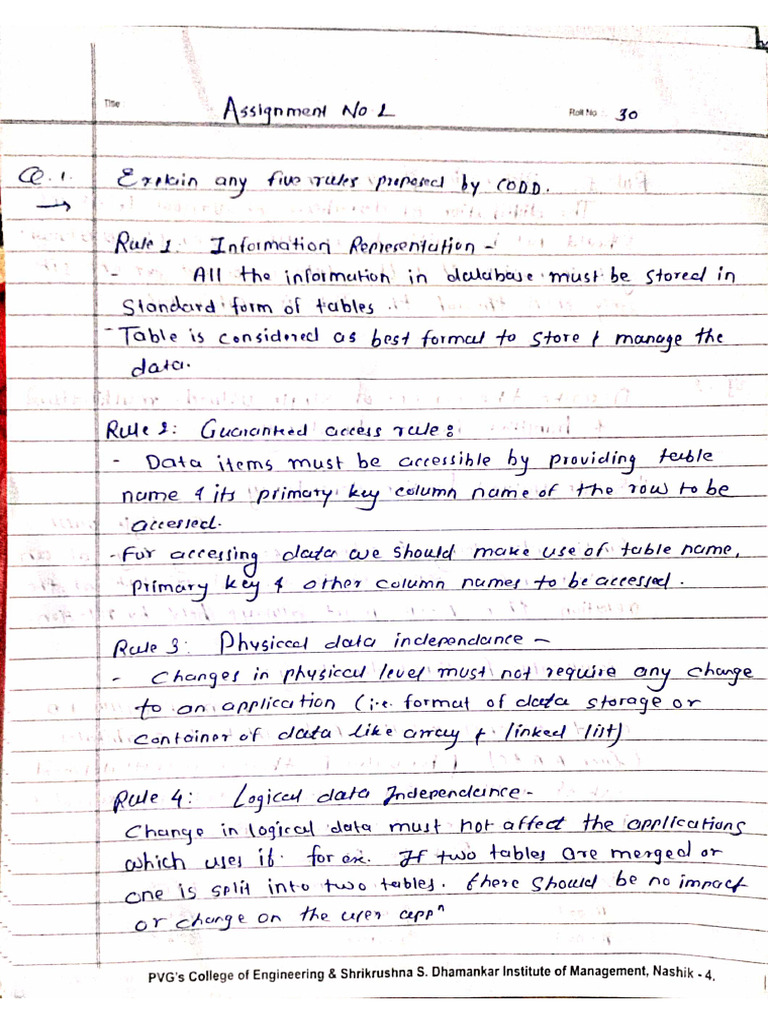 Title Assignment No 1 Roll No 30
Q.1. Explain any five rules proposed by CODD.
→
Rule 1: Information Representation -
- All the information in database must be stored in
standard form of tables.
- Table is considered as best format to store & manage the
data.
Rule 2: Guaranteed access rule:
- Data items must be accessible by providing table
name & its primary key column name of the row to be
accessed.
- For accessing data we should make use of table name,
primary key & other column names to be accessed.
Rule 3: Physical data independance -
- Changes in physical level must not require any change
to an application (i.e. format of data storage or
container of data like array & linked list)
Rule 4: Logical data Independance -
Change in logical data must not affect the applications
which uses it. for ex. If two tables are merged or
one is split into two tables. there should be no impact
or change on the user appⁿ
PVG's College of Engineering & Shrikrushna S. Dhamankar Institute of Management, Nashik - 4.